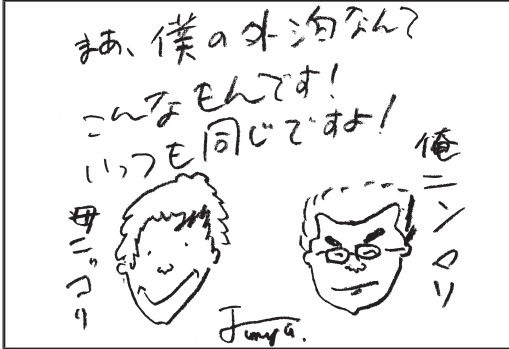 まあ、僕の外泊なんて
こんなもんです!
いつも同じですよ!
母ニッコリ
俺ニンマリ
Junya.